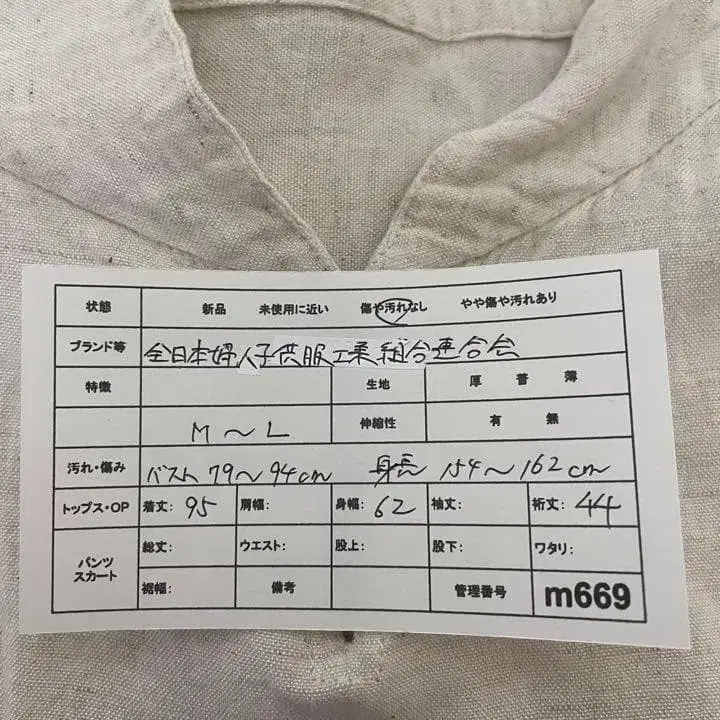 状態 新品 未使用に近い 傷や汚れなし やや傷や汚れあり
ブランド等 全日本婦人子供服工業組合連合会
特徴 生地 厚 普 薄
M〜L 伸縮性 有 無
汚れ・傷み バスト 79〜94cm 身長 154〜162cm
トップス・OP 着丈: 95 肩幅: 身幅: 62 袖丈: 裄丈: 44
パンツ スカート 総丈: ウエスト: 股上: 股下: ワタリ:
裾幅: 備考 管理番号 m669